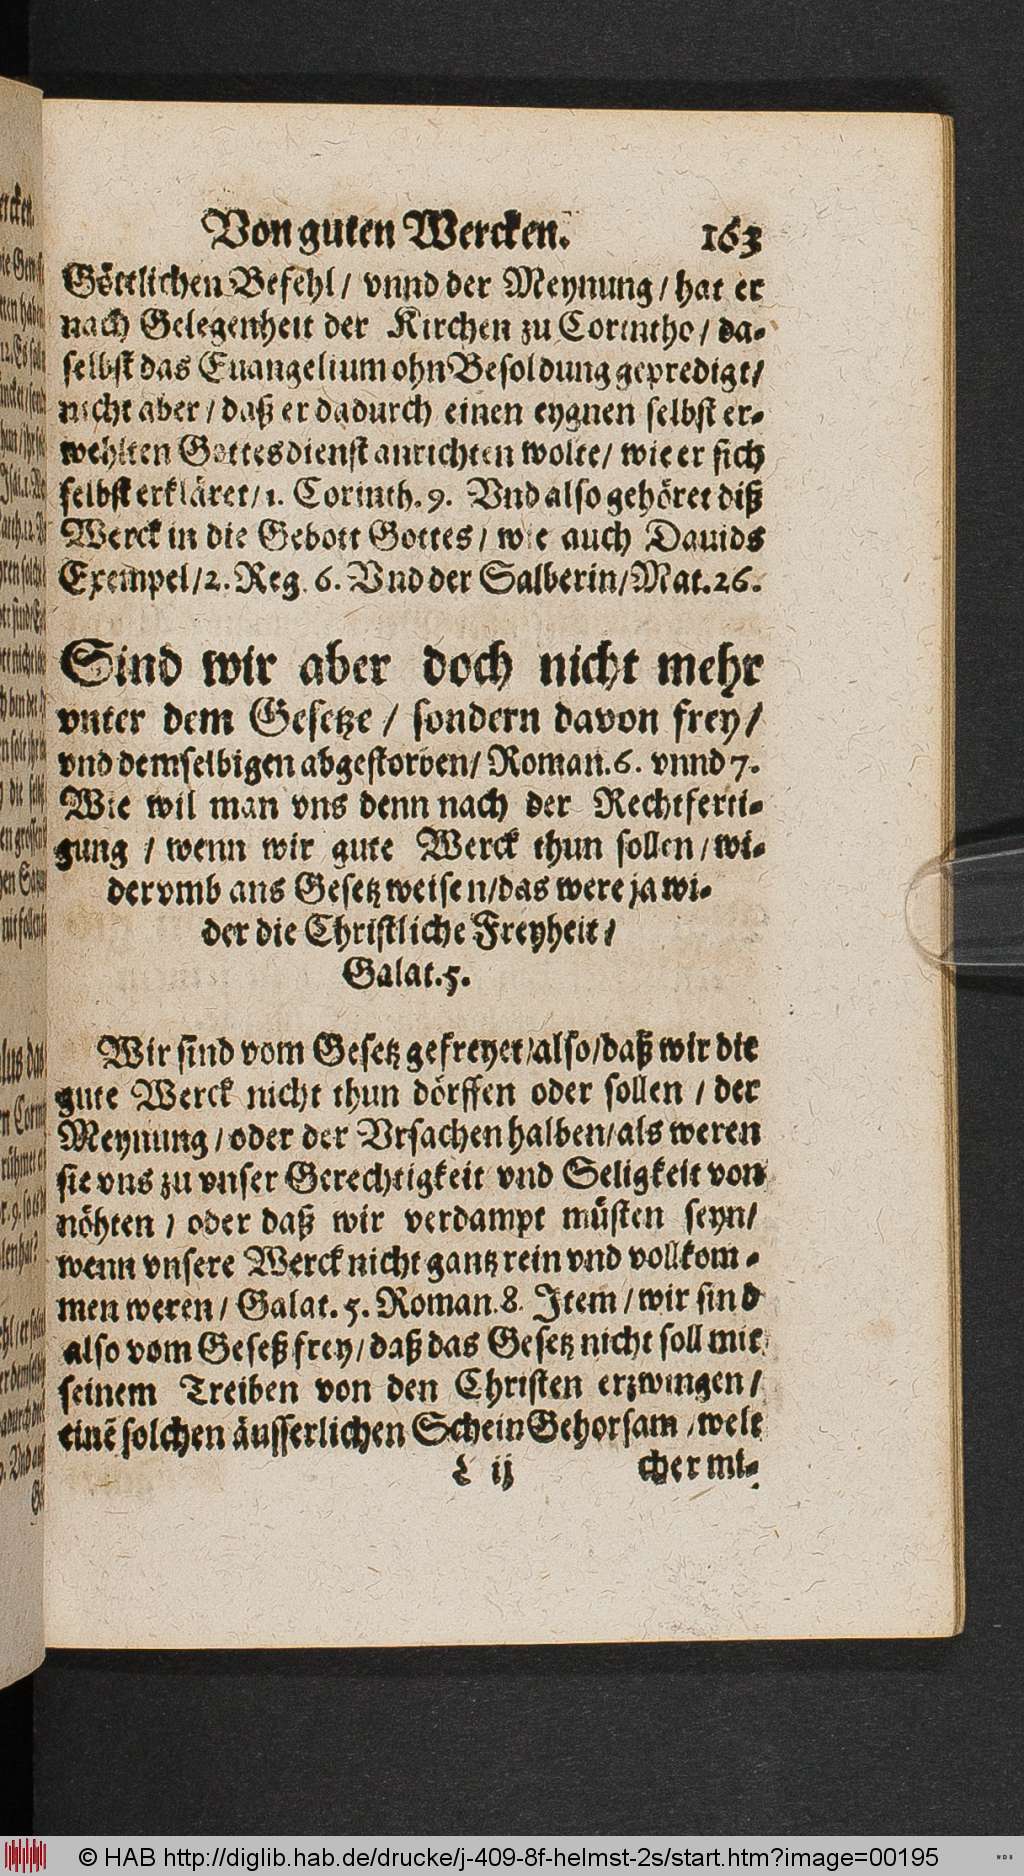 Von guten Wercken. 163
Göttlichen Befehl / vnnd der Meynung / hat er
nach Gelegenheit der Kirchen zu Corintho / da-
selbst das Euangelium ohn Besoldung gepredigt /
nicht aber / daß er dadurch einen eygnen selbst er-
wehlten Gottesdienst anrichten wolte / wie er sich
selbst erkläret / 1. Corinth. 9. Vnd also gehöret diß
Werck in die Gebott Gottes / wie auch Dauids
Exempel / 2. Reg. 6. Vnd der Salberin / Mat. 26.
Sind wir aber doch nicht mehr
vnter dem Gesetze / sondern davon frey /
vnd demselbigen abgestorven / Roman. 6. vnnd 7.
Wie wil man vns denn nach der Rechtferti-
gung / wenn wir gute Werck thun sollen / wi-
der vmb ans Gesetz weisen / das were ja wi-
der die Christliche Freyheit /
Galat. 5.
Wir sind vom Gesetz gefreyet / also / daß wir die
gute Werck nicht thun dörffen oder sollen / der
Meynung / oder der Vrsachen halben / als weren
sie vns zu vnser Gerechtigkeit vnd Seligkeit von
nöhten / oder daß wir verdampt müsten seyn /
wenn vnsere Werck nicht gantz rein vnd vollkom-
men weren / Galat. 5. Roman. 8. Item / wir sind
also vom Geseß frey / daß das Gesetz nicht soll mit
seinem Treiben von den Christen erzwingen /
einẽ solchen äusserlichen Schein Gehorsam / welt
L ij cher mi-
© HAB http://diglib.hab.de/drucke/j-409-8f-helmst-2s/start.htm?image=00195